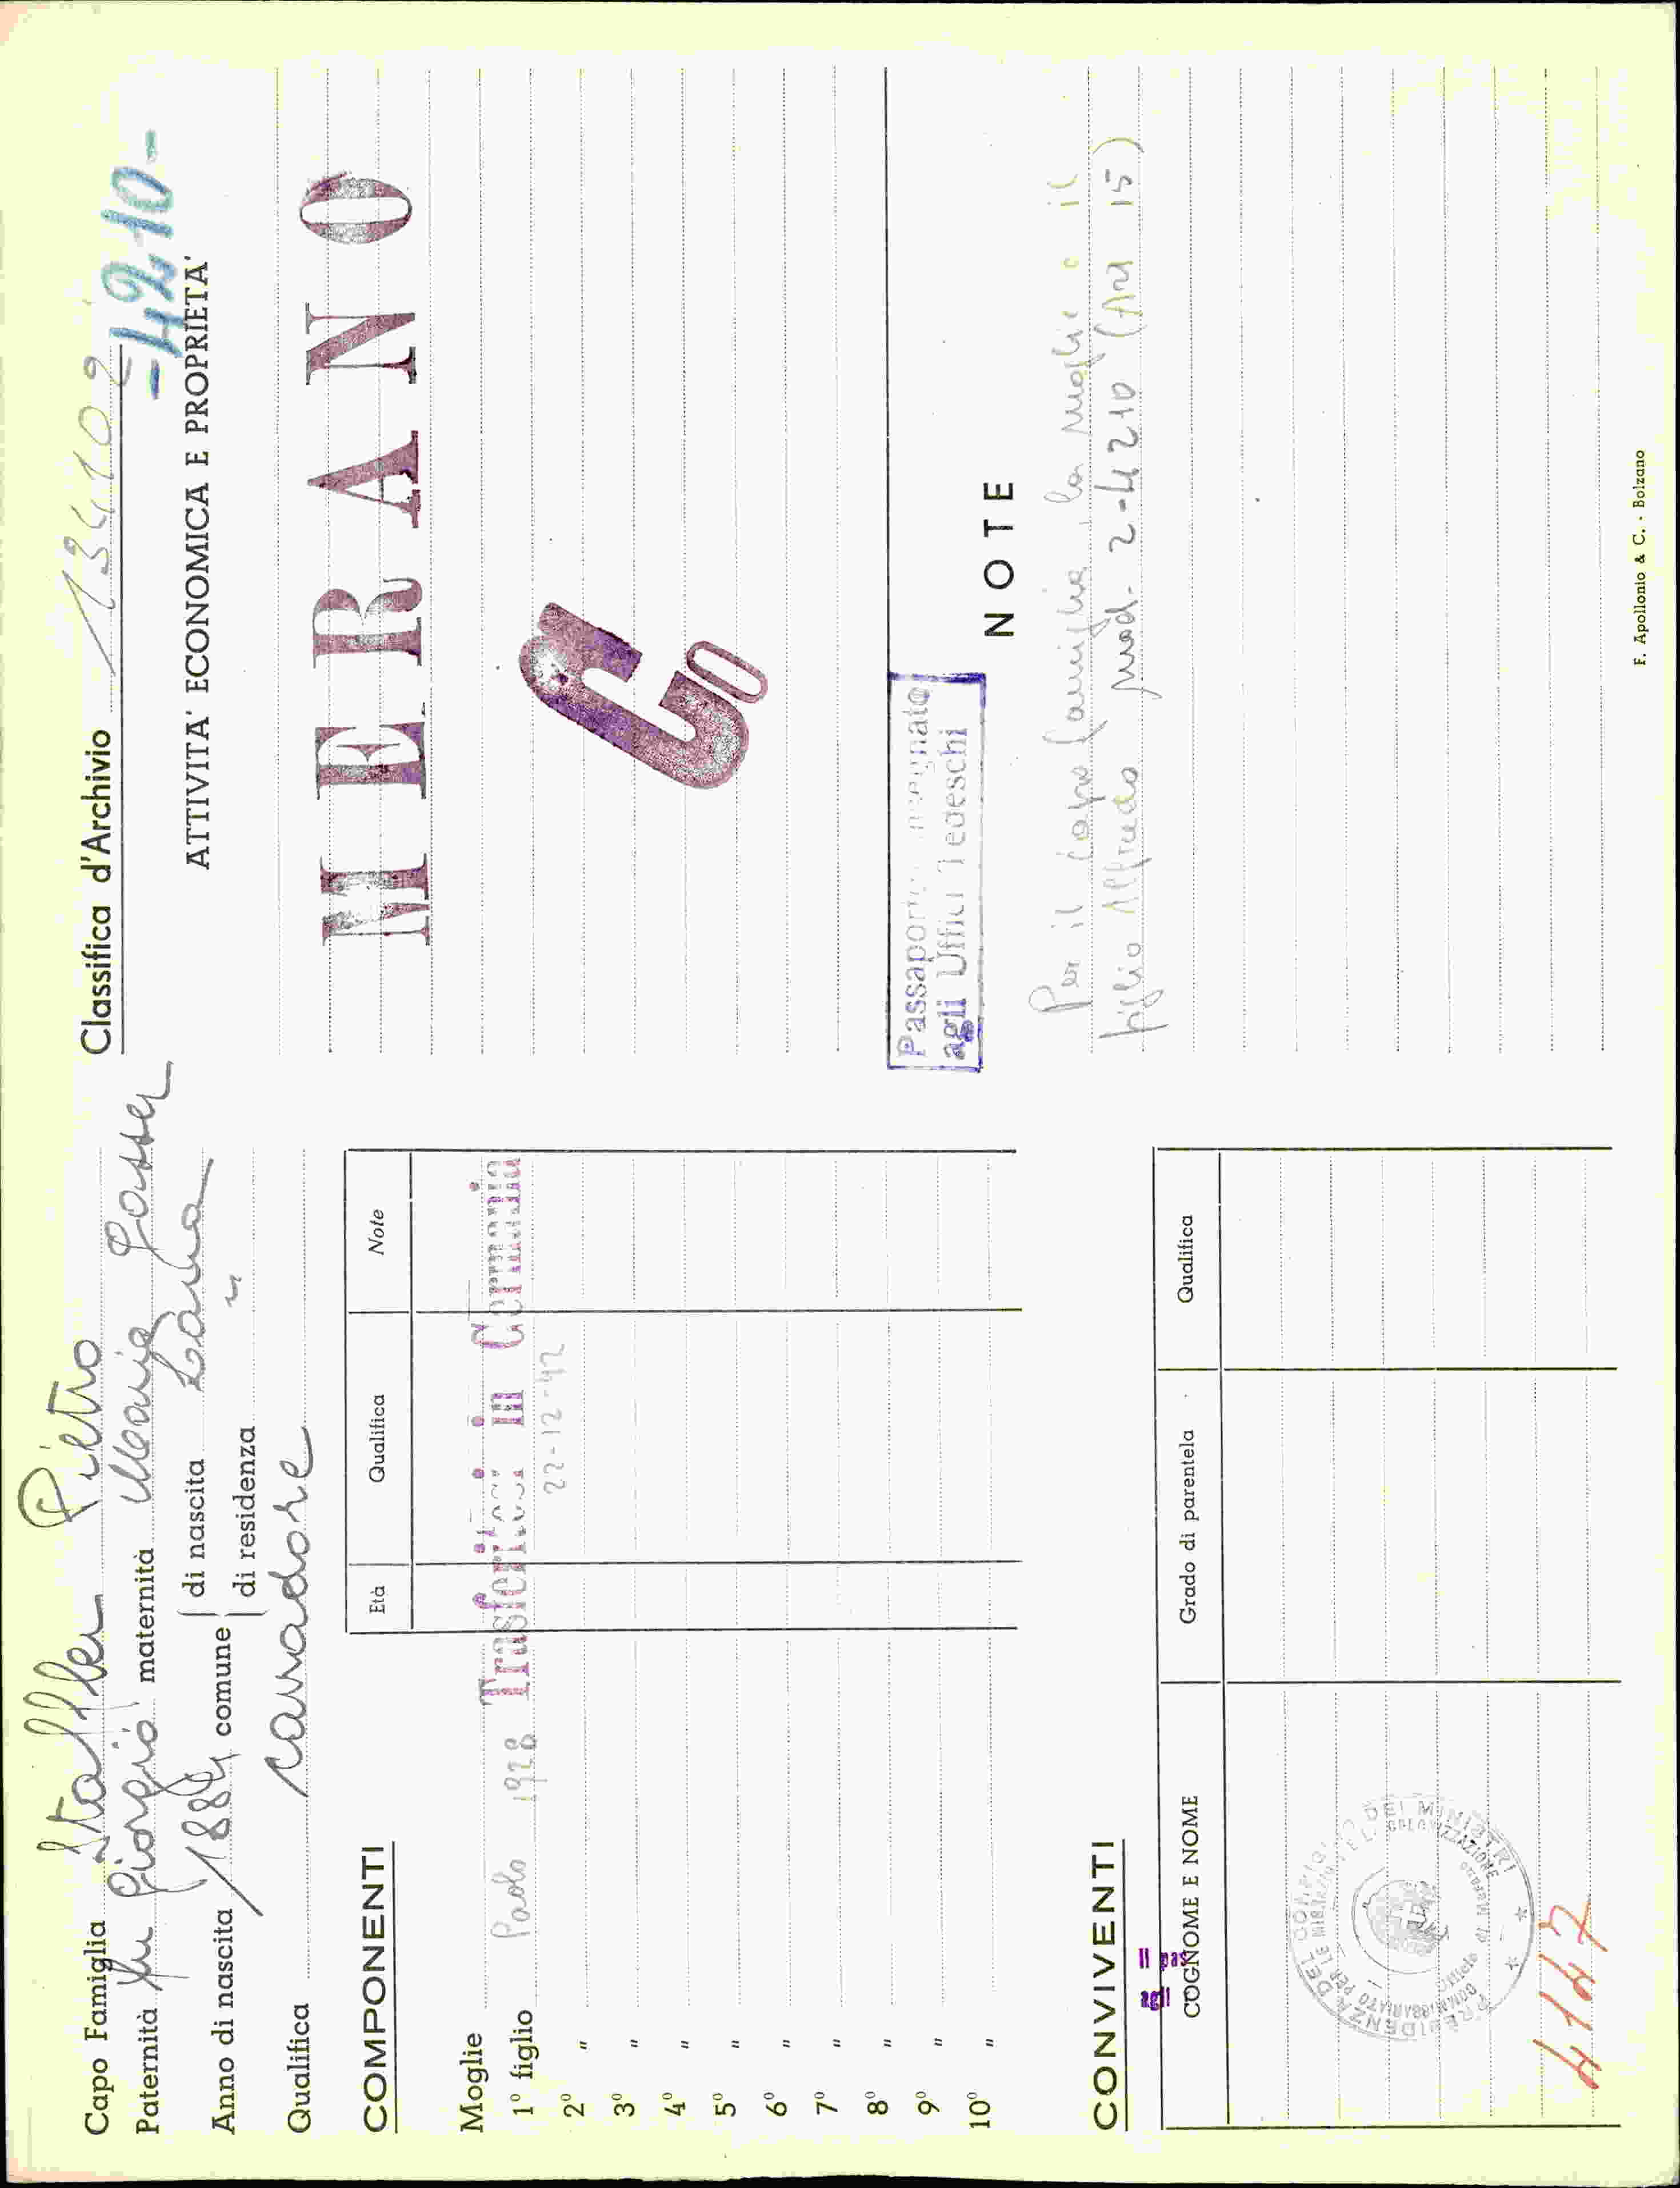 Capo Famiglia Staffler Pietro
Paternità fu Giorgio maternità Maria Gosser
Anno di nascita 1884 comune di nascita Lana
di residenza "
Qualifica lavadore
COMPONENTI
Età Qualifica Note
Moglie
1º figlio Paolo 1928 Trasferitosi in Germania
22-12-42
2º "
3º "
4º "
5º "
6º "
7º "
8º "
9º "
10º "
CONVIVENTI
Il pas
agli
COGNOME E NOME Grado di parentela Qualifica
PRESIDENZA DEL CONSIGLIO DEI MINISTRI
COMMISSARIATO PER LE MIGRAZIONI E LA COLONIZZAZIONE
Ufficio di Merano
4147
Classifica d'Archivio 134102
-4210-
ATTIVITA' ECONOMICA E PROPRIETA'
MERANO
G0
Passaporto consegnato
agli Uffici Tedeschi
NOTE
Per il capo famiglia, la moglie e il
figlio Alfredo mod. 2-4210 (Art 15)
F. Apollonio & C. - Bolzano